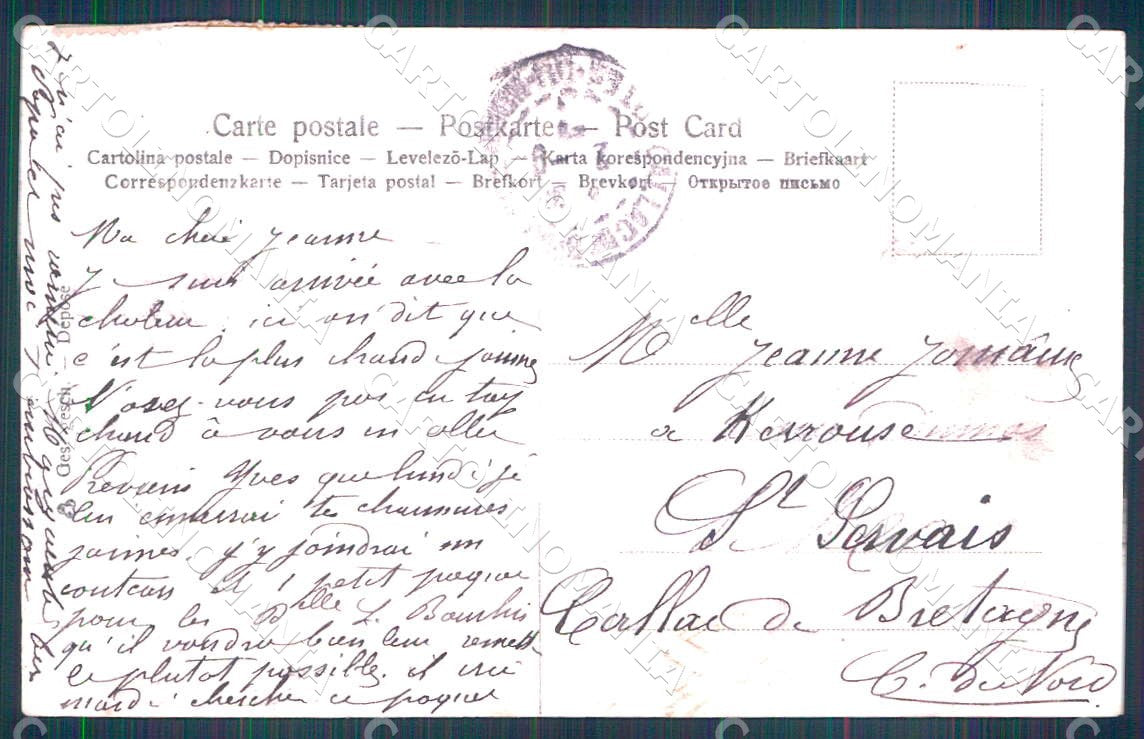 Carte postale — Postkarte — Post Card
Cartolina postale — Dopisnice — Levelező-Lap — Karta korespondencyjna — Briefkaart
Correspondenzkarte — Tarjeta postal — Brefkort — Brevkort — Открытое письмо
Ma chère Jeanne
J suis arrivée avec la
chaleur, ici on dit que
c'est la plus chaude journée
N'avez-vous pas eu trop
chaud à vous en aller
Yves que lundi je
lui enverrai tes chaussures
jaunes. j'y joindrai un
couteau et 1 petit paquet
pour les Delle L. Bourhis
qu'il voudra bien leur remett
le plutot possible. il irai
mardi chercher ce paquet
Melle Jeanne
à
St Gervais
Callac de Bretagne
C. du Nord
Ges. Gesch. — Déposé
CARTOLINOMANIA